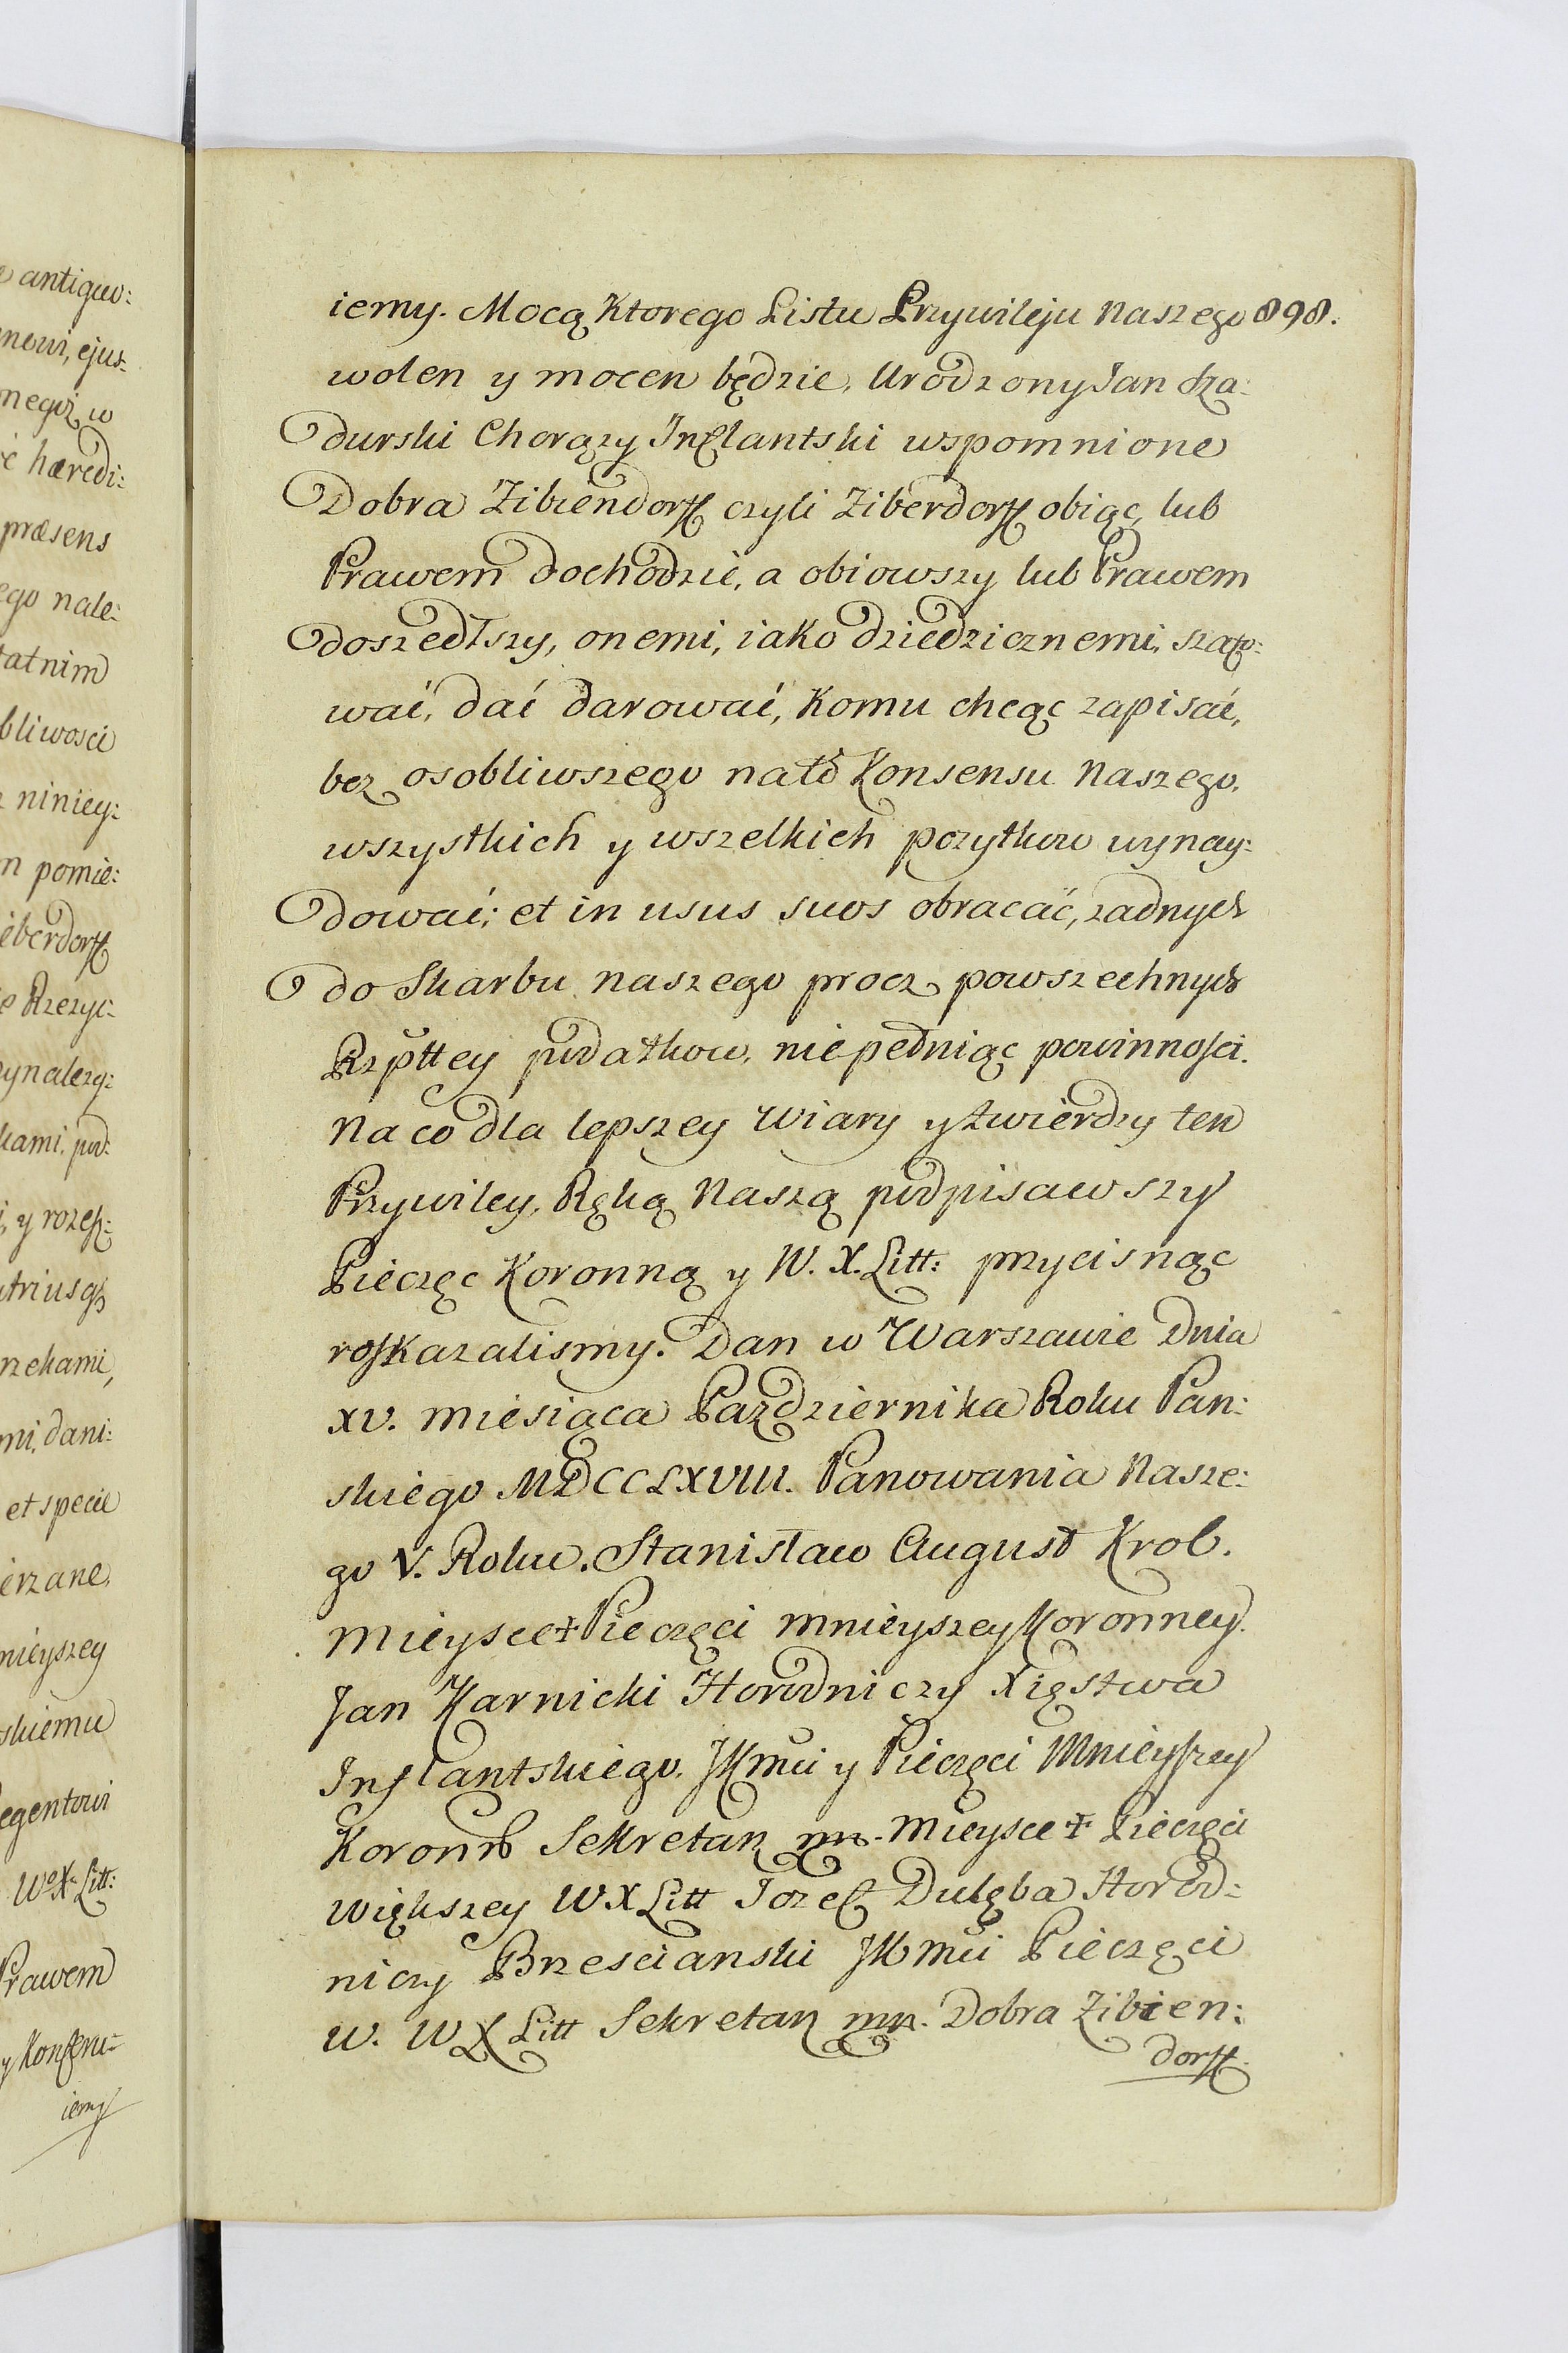 iemy. Mocą Ktorego Listu Przywileju Naszego 898.
wolen y mocen będzie, Urodzony Jan Sza:
durski Chorązy Inflantski wspomnione
Dobra Zibiendorff czyli Ziberdorff obiąc, lub
Prawem dochodzić, a obiowszy lub Prawem
doszedłszy, onemi, iako dziedzicznemi, szafo:
wać, dać darować, Komu chcąc zapisać,
bez osobliwszego na to Konsensu Naszego,
wszystkich y wszelkich pozytkow wynay:
dować; et in usus suos obracać, zadnych
do Skarbu naszego procz powszechnych
Rzpttey podatkow, nie pełniąc powinności.
Na co dla lepszey Wiary y twierdzy ten
Przywiley, Ręką Naszą podpisawszy
Pieczęc Koronną y W. X. Litt: przycisnąc
roskazalismy. Dan w Warszawie Dnia
XV. miesiąca Pazdziernika Roku Pan:
skiego MDCCLXVIII. Panowania Nasze:
go V. Roku. Stanisław August Krol.
Mieysce + Pieczęci mnieyszey Koronney.
Jan Karnicki Horodniczy Xięstwa
Inflantskiego, JKmci y Pieczęci Mnieyszey
Koronn Sekretarz mp. Mieysce + Pieczęci
większey W X Litt Jozef Dulęba Horod:
niczy Brzescianski JKmci Pieczęci
W. W X Litt Sekretarz mp. Dobra Zibien:
dorff.
e antiquo:
nowi, ejus:
negoż w
haeredi:
praesens
ego nale:
tatnim
bliwosci
niniey:
m pomie:
iberdorff
Rzezyc:
zynalezy:
kami, pod:
, y rozef:
utriusq
rzekami,
mi, dani:
et specie
ierzane,
nieyszey
skiemu
Regentowi
W X Litt:
Prawem
y Konfenu:
iemy